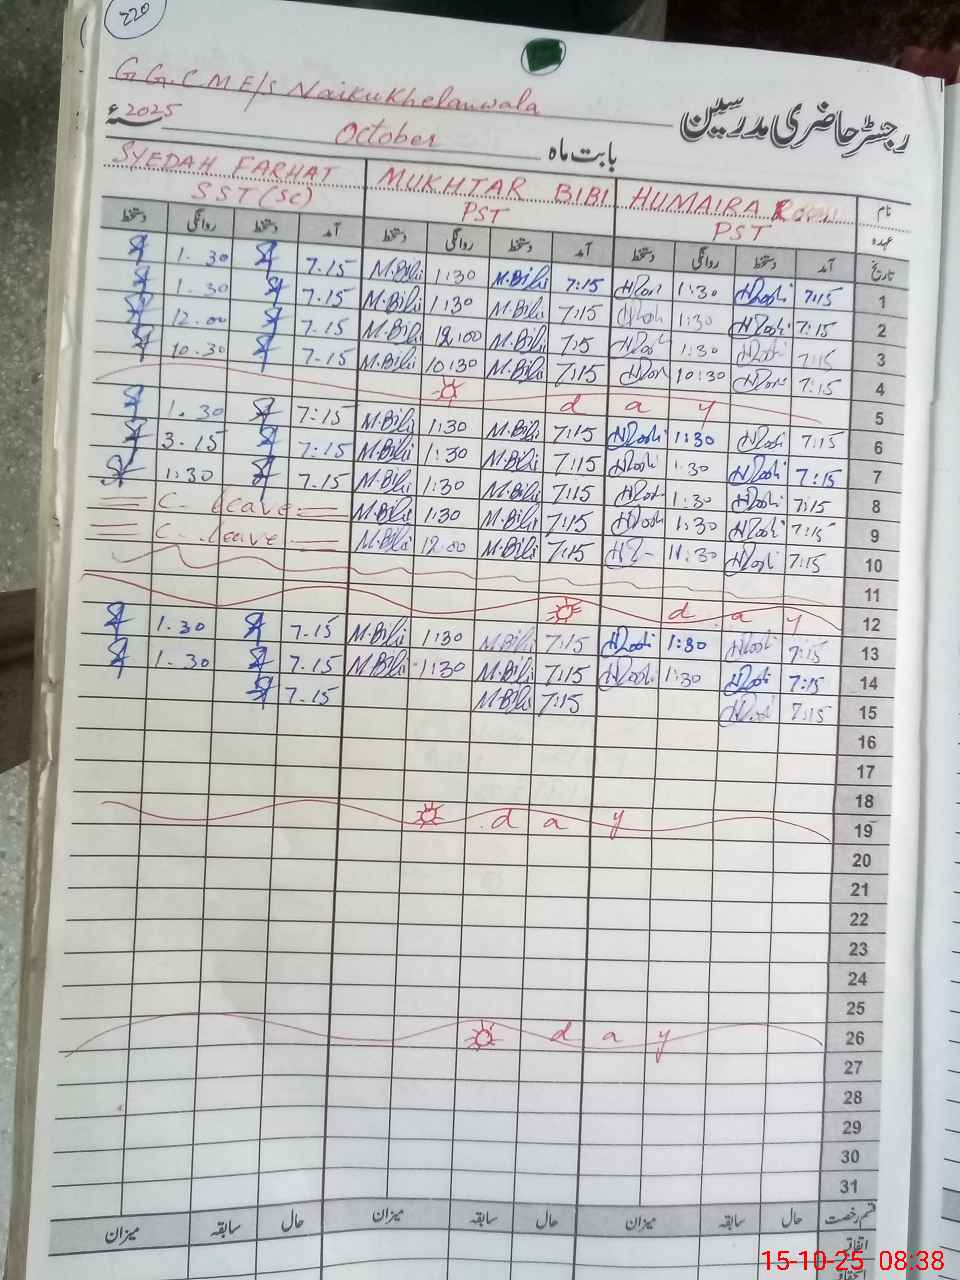 220
G.G.C.M.E/S Naikukhelanwala
رجسٹر حاضری مدرسین
2025ء
بابت ماہ October
SYEDAH FARHAT MUKHTAR BIBI HUMAIRA نام
SST(Sc) PST PST عہدہ
دستخط روانگی دستخط آمد دستخط روانگی دستخط آمد دستخط روانگی دستخط آمد تاریخ
1.30 7.15 M.Bibi 1:30 M.Bibi 7:15 1:30 7:15 1
1.30 7.15 M.Bibi 1:30 M.Bibi 7:15 1:30 7:15 2
12.00 7.15 M.Bibi 12:00 M.Bibi 7:15 1:30 7:15 3
10.30 7.15 M.Bibi 10:30 M.Bibi 7:15 10:30 7:15 4
day 5
1.30 7:15 M.Bibi 1:30 M.Bibi 7:15 1:30 7:15 6
3.15 7:15 M.Bibi 1:30 M.Bibi 7:15 1:30 7:15 7
1:30 7.15 M.Bibi 1:30 M.Bibi 7:15 1:30 7:15 8
C-leave M.Bibi 1:30 M.Bibi 7:15 1:30 7:15 9
C-leave M.Bibi 12.00 M.Bibi 7:15 11:30 7:15 10
11
day 12
1.30 7.15 M.Bibi 1:30 M.Bibi 7:15 1:30 7:15 13
1.30 7.15 M.Bibi 1:30 M.Bibi 7:15 1:30 7:15 14
7.15 M.Bibi 7:15 7:15 15
16
17
18
day 19
20
21
22
23
24
25
day 26
27
28
29
30
31
میزان سابقہ حال میزان سابقہ حال میزان سابقہ حال قسم رخصت
اتفاقی
15-10-25 08:38